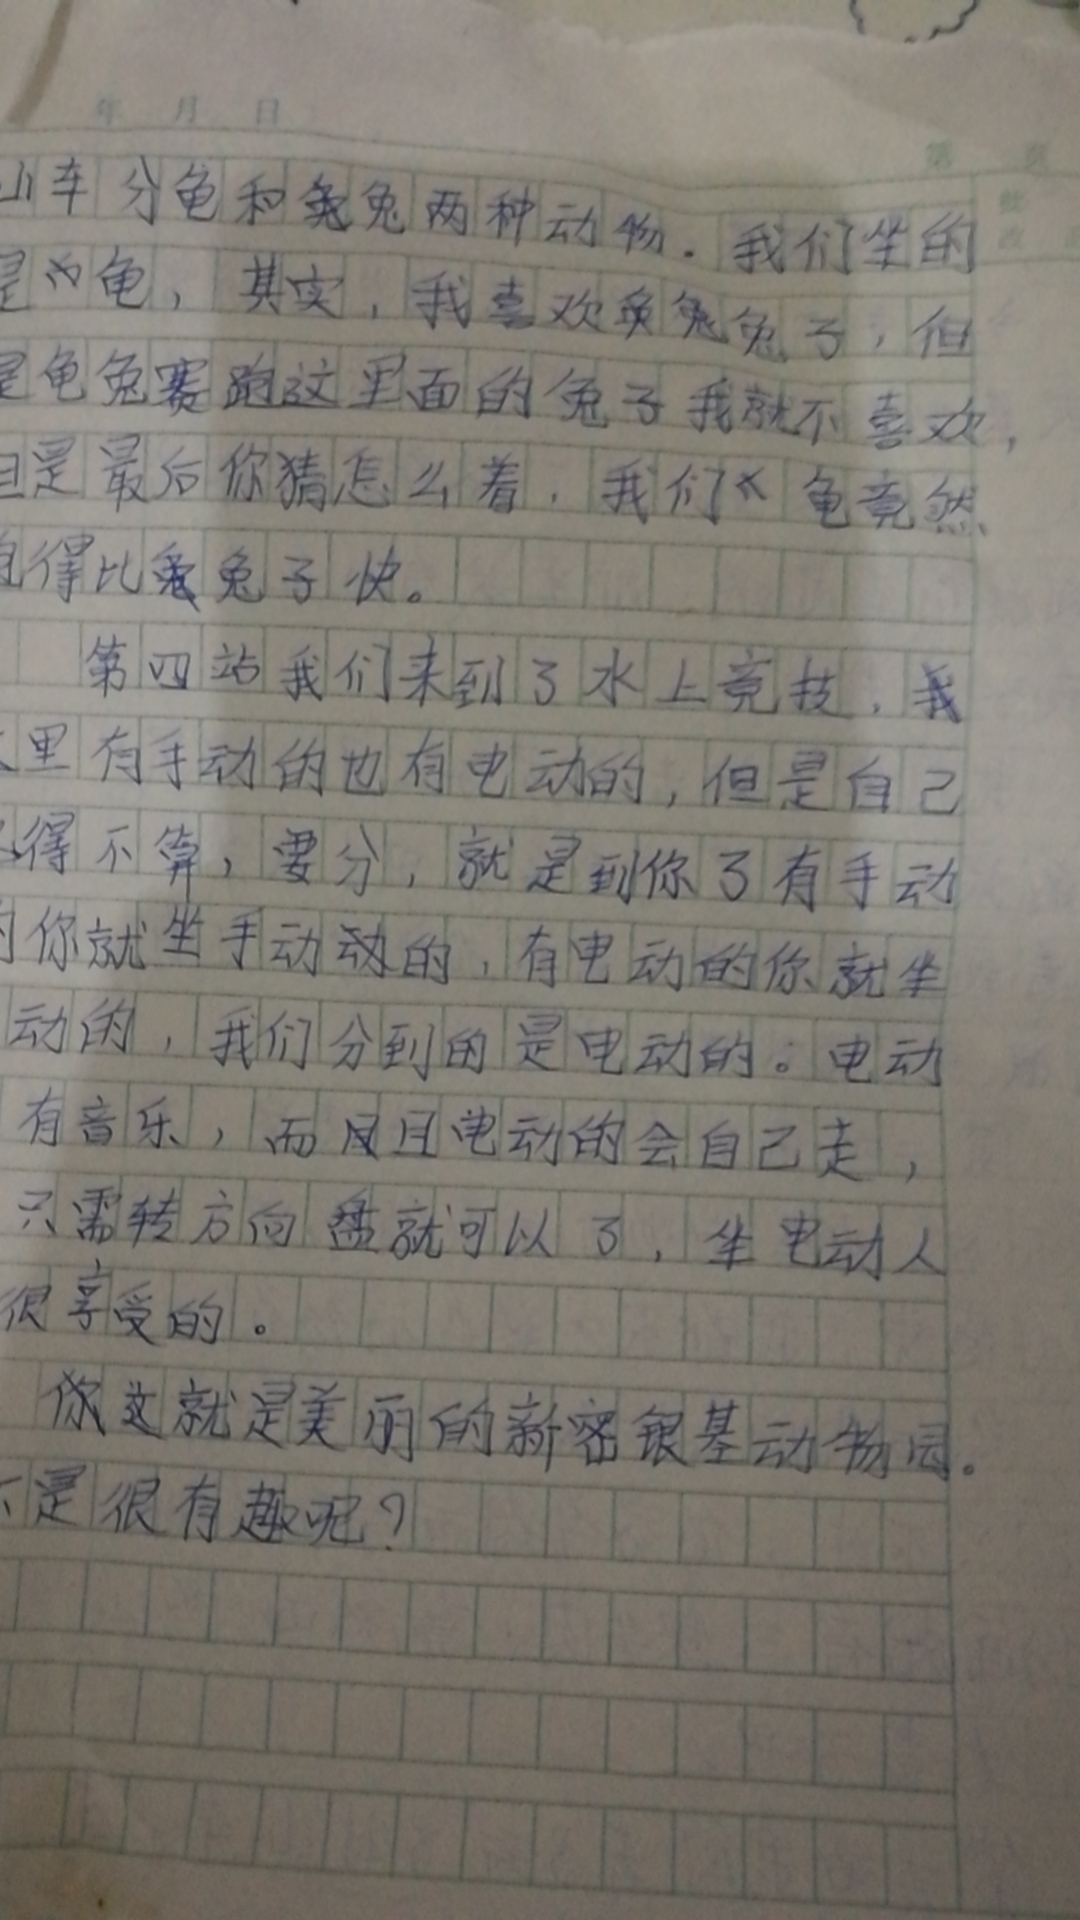 年 月 日
第 页
山车分龟和兔两种动物．我们坐的
是龟，其实，我喜欢兔子，但
是龟兔赛跑这里面的兔子我就不喜欢，
但是最后你猜怎么着．我们龟竟然
得比兔子快。
第四站我们来到了水上竞技．我
里有手动的也有电动的，但是自己
得不算，要分，就是到你了有手动
的你就坐手动的，有电动的你就坐
动的，我们分到的是电动的。电动
有音乐，而且电动的会自己走，
只需转方向盘就可以了，坐电动人
很享受的。
这就是美丽的新密银基动物园。
不是很有趣呢？